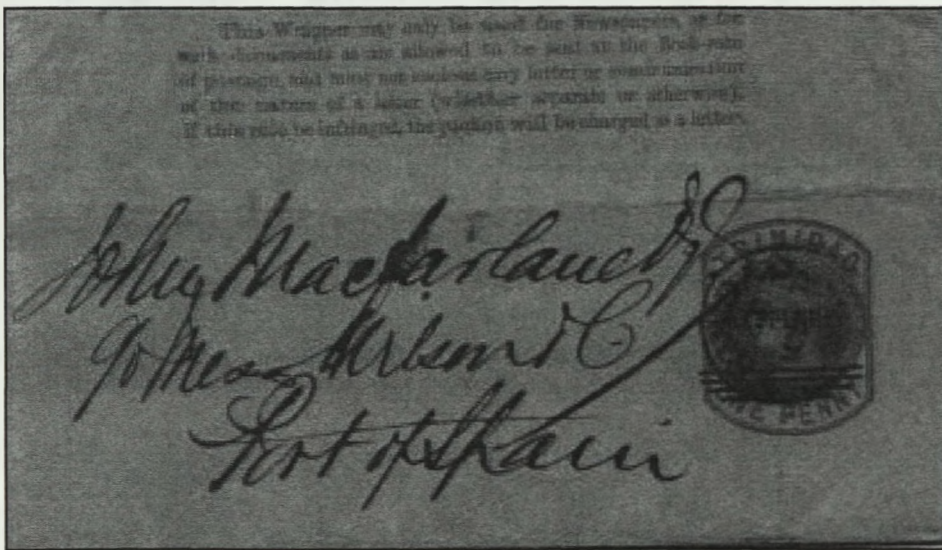 This Wrapper may only be used for Newspapers, or for
such documents as are allowed to be sent at the Book-rate
of postage, and must not enclose any letter or communication
of the nature of a letter (whether separate or otherwise).
If this rule be infringed, the packet will be charged as a letter.
John Macfarlane Esq
c/o Mess Wilson & C
Port of Spain
TRINIDAD
ONE PENNY